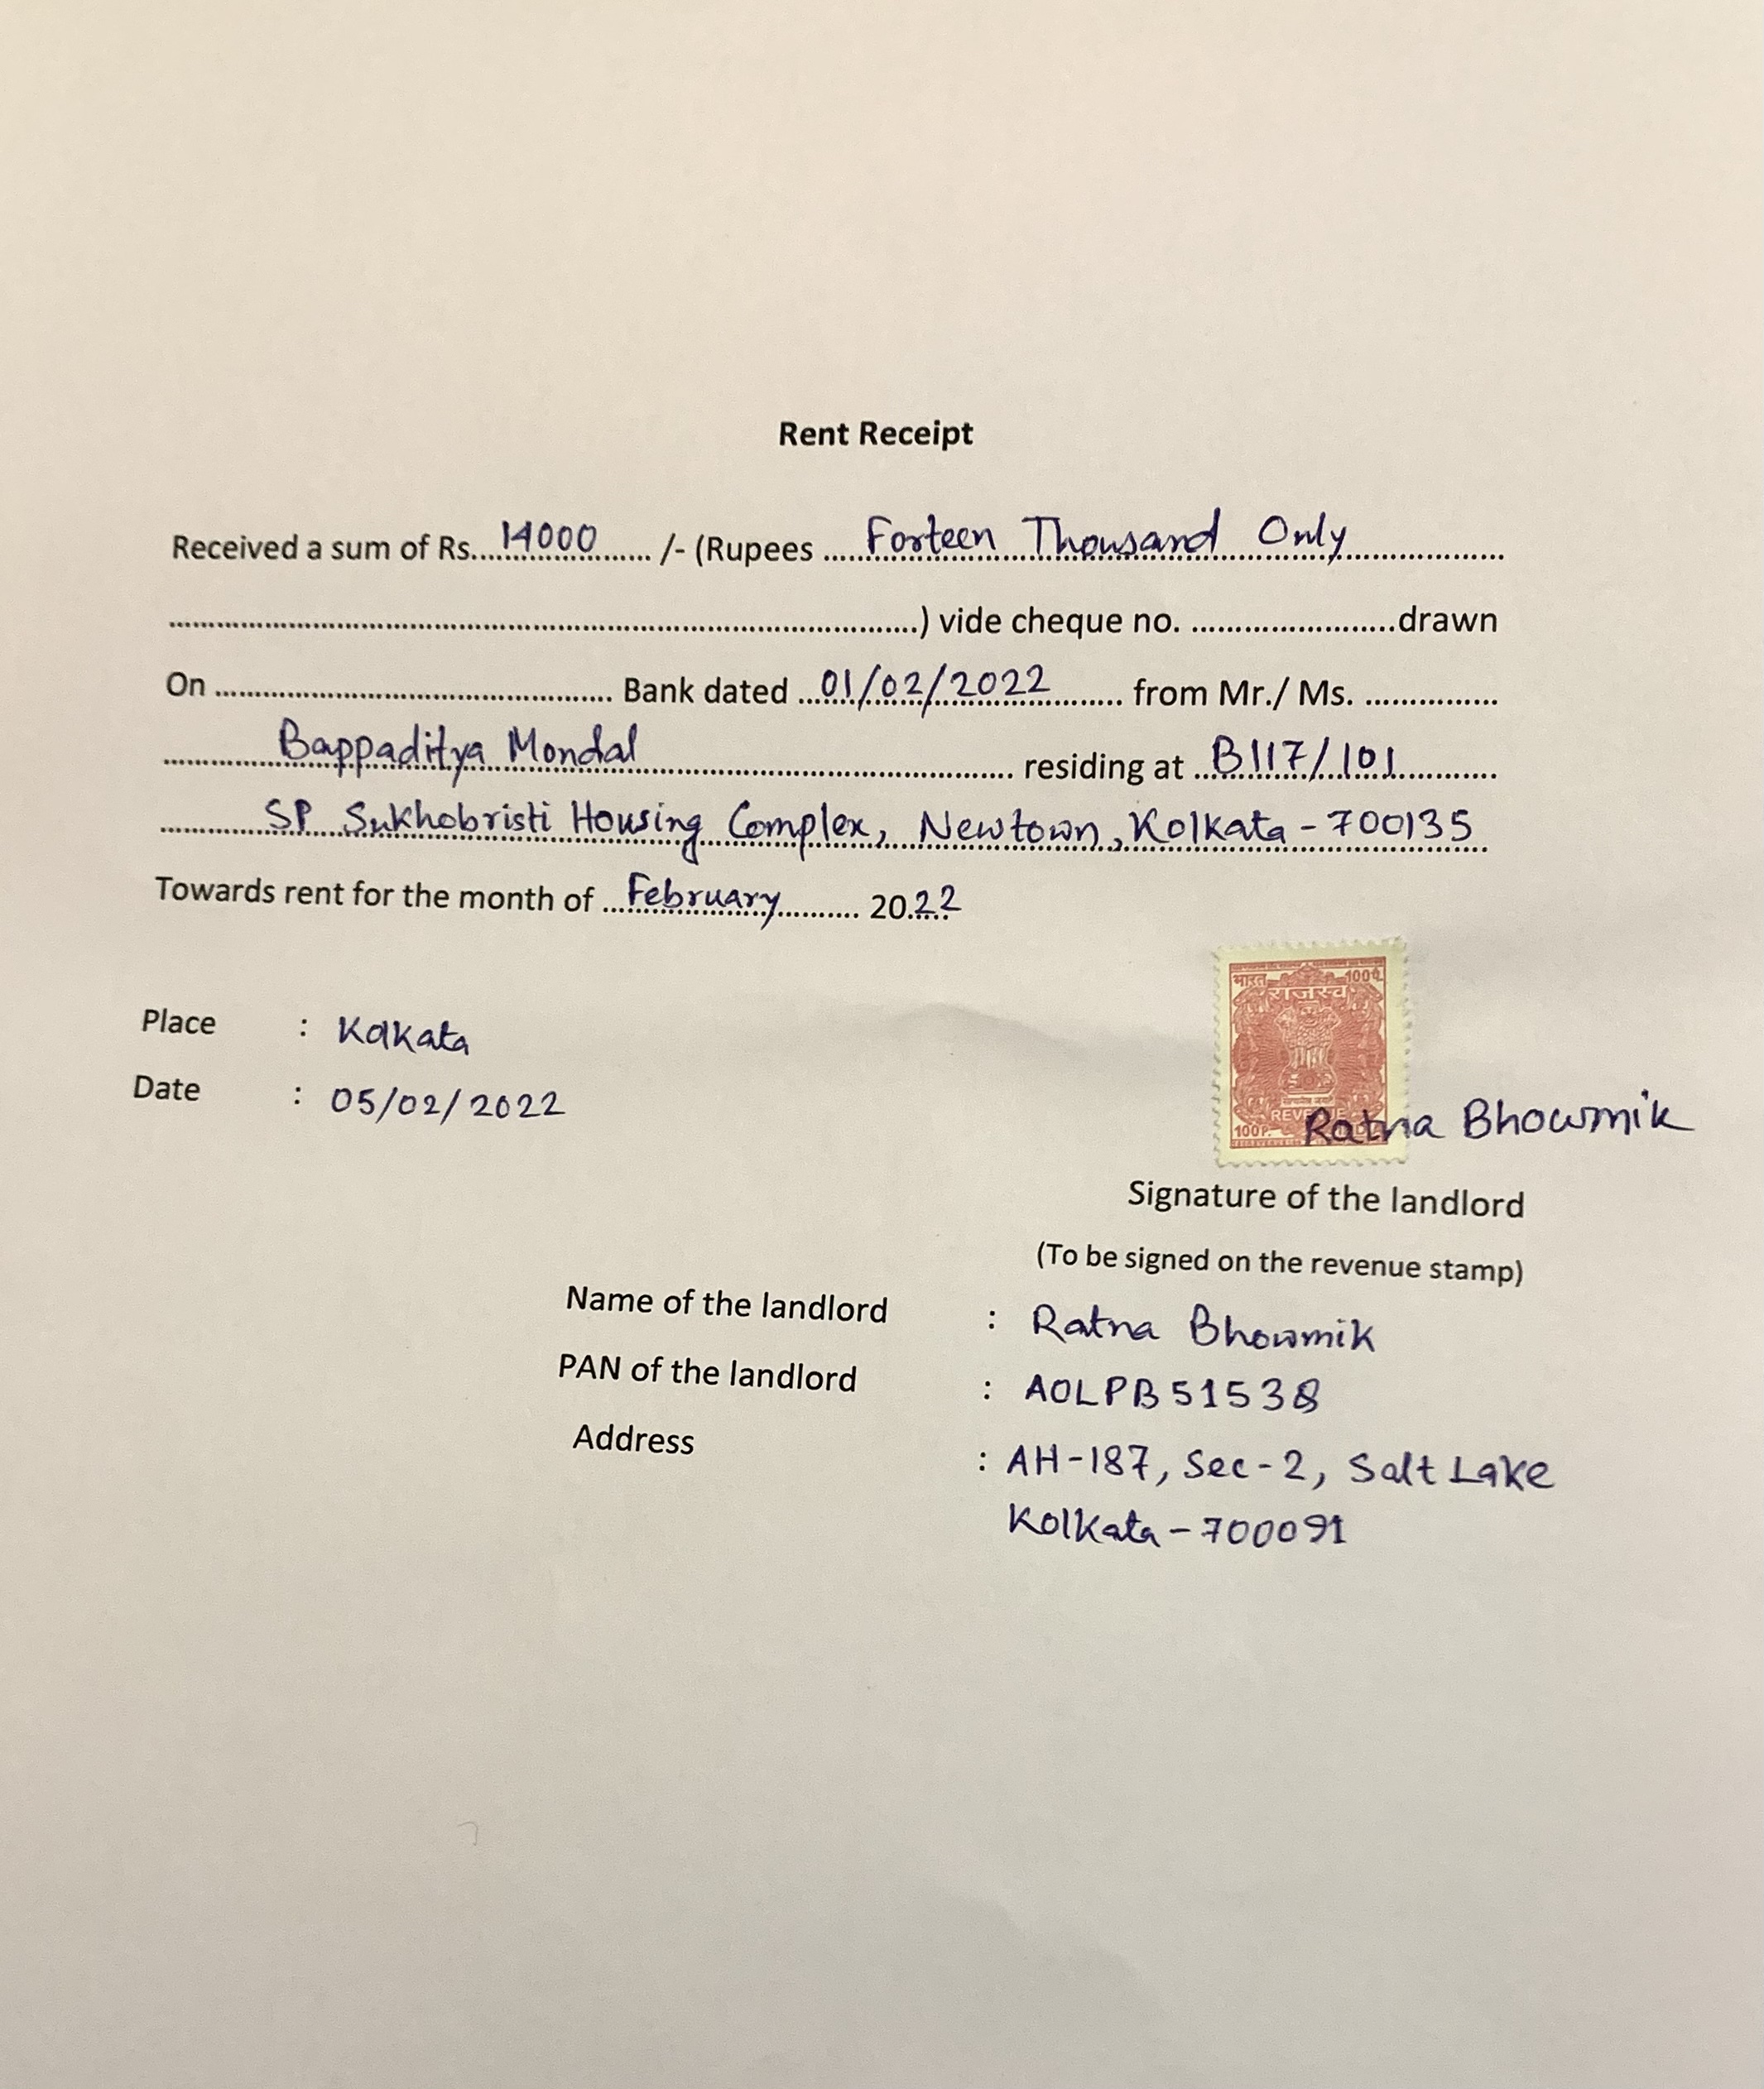 Rent Receipt
Received a sum of Rs....14000....... /- (Rupees .....Forteen Thousand Only......................
...............................................................................................) vide cheque no. ..........................drawn
On .................................................. Bank dated ...01/02/2022......... from Mr./ Ms. .................
...............Bappaditya Mondal................................................ residing at ..B117/101.............
.............SP Sukhobristi Housing Complex, Newtown, Kolkata - 700135
Towards rent for the month of ...February.......... 20.22
भारत 100P.
राजस्व
Place : Kolkata
Date : 05/02/2022
100P.
Ratna Bhowmik
Signature of the landlord
(To be signed on the revenue stamp)
Name of the landlord : Ratna Bhowmik
PAN of the landlord : AOLPB5153Q
Address : AH-187, Sec-2, Salt Lake
Kolkata - 700091